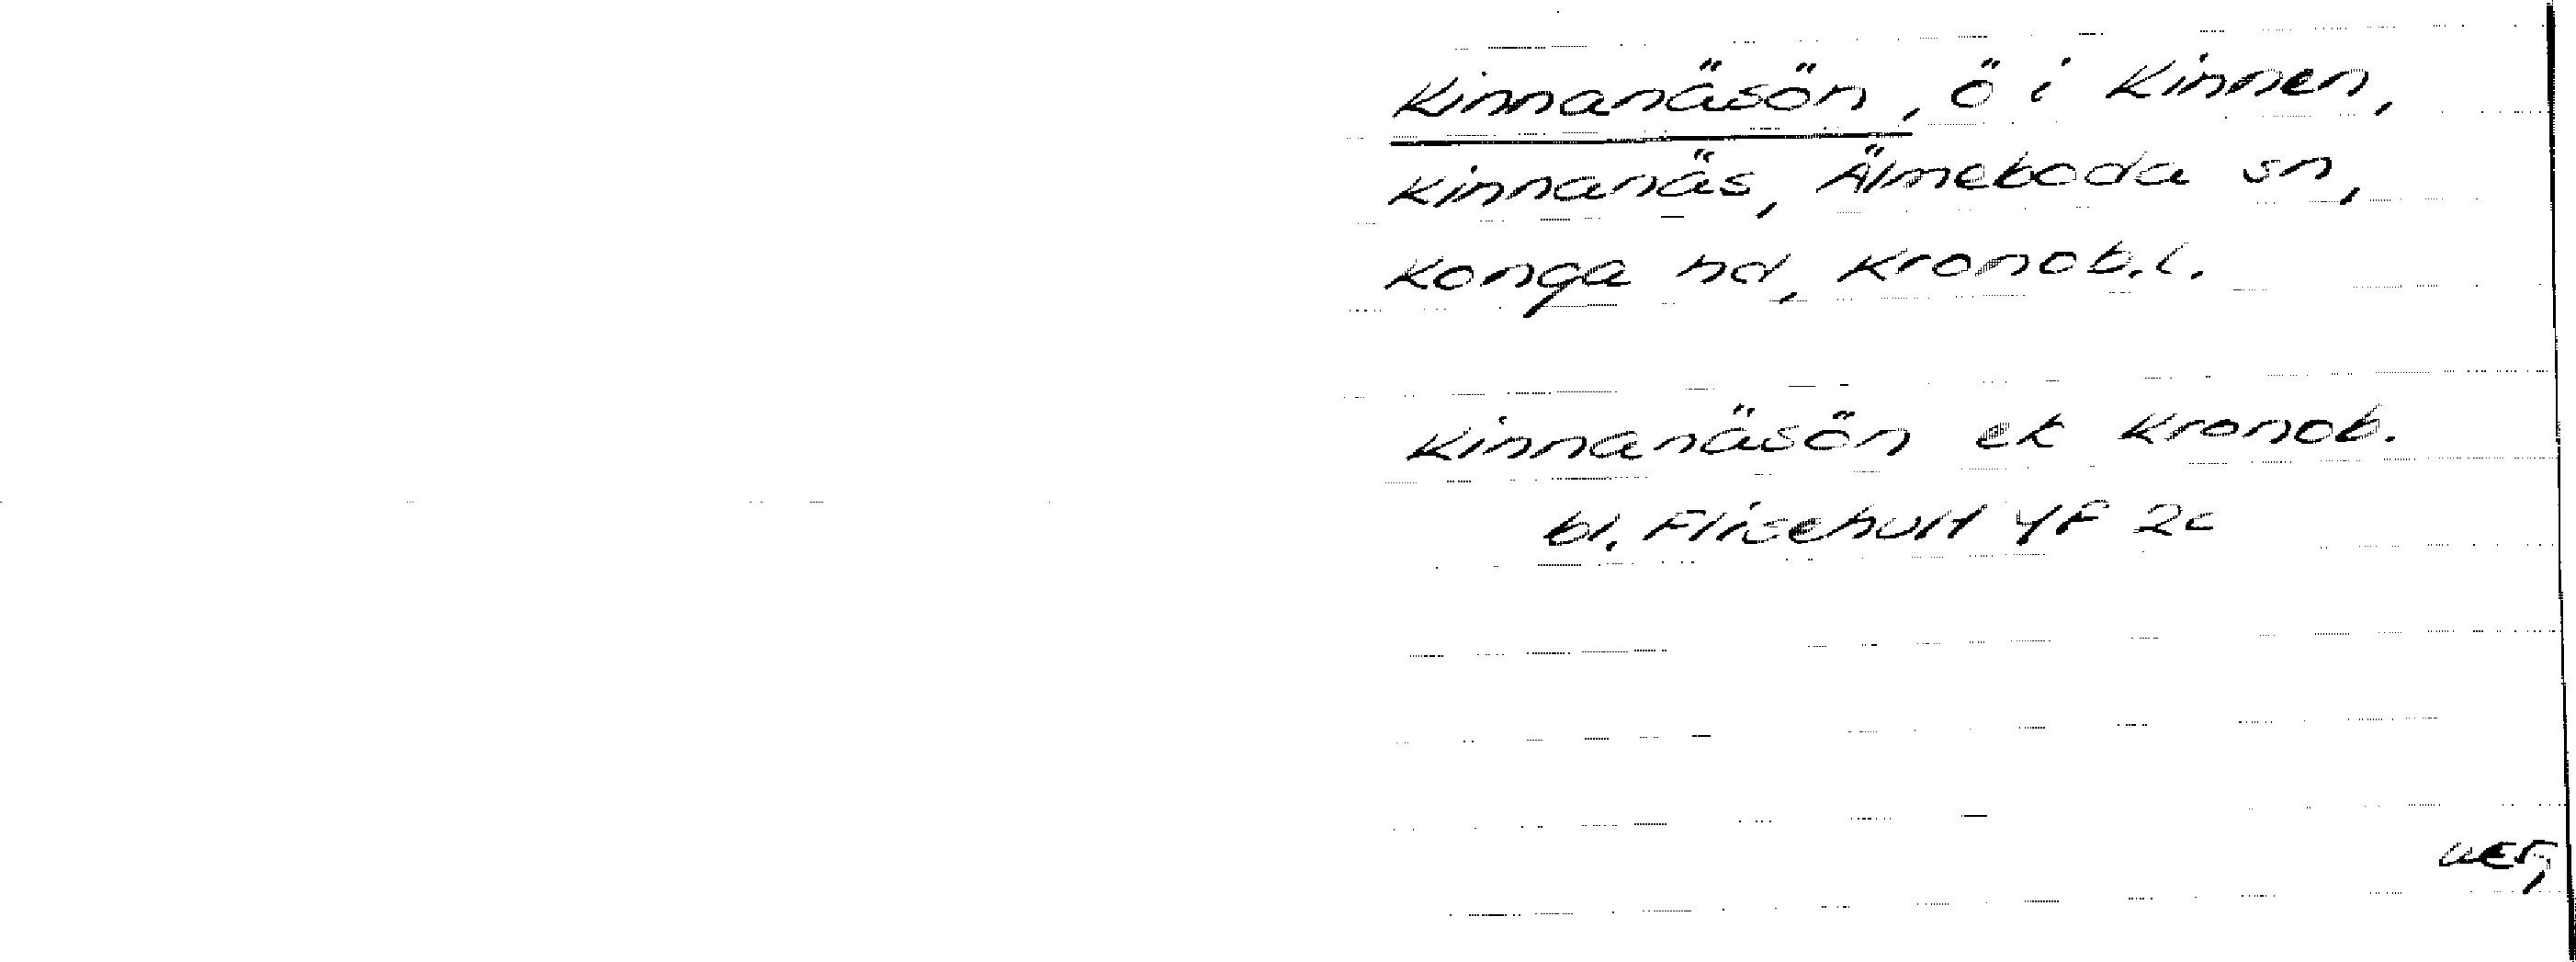 Kinnanäsön, ö i Kinnen,
Kinnanäs, Älmeboda sn,
Konga hd, Kronob.l.
Kinnanäsön ek Kronob.
bl. Flisehult 4F 2c